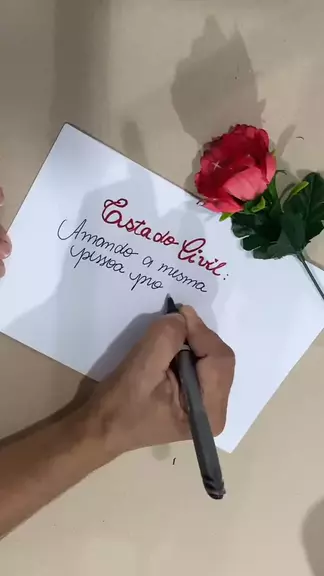 Estado Civil:
Amando a mesma
pessoa pro